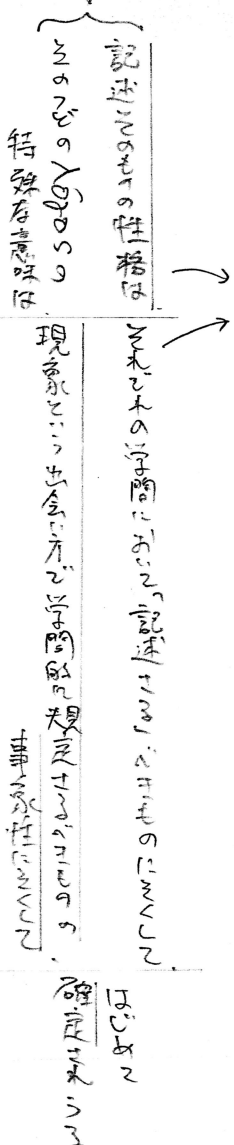 記述そのものの性格は
そのつどのλόγοςの
特殊な意味は
それぞれの学問において「記述さる」べきものにそくして
現象という出会い方で学問的に規定さるべきものの
事象性にそくして
はじめて
確定されうる